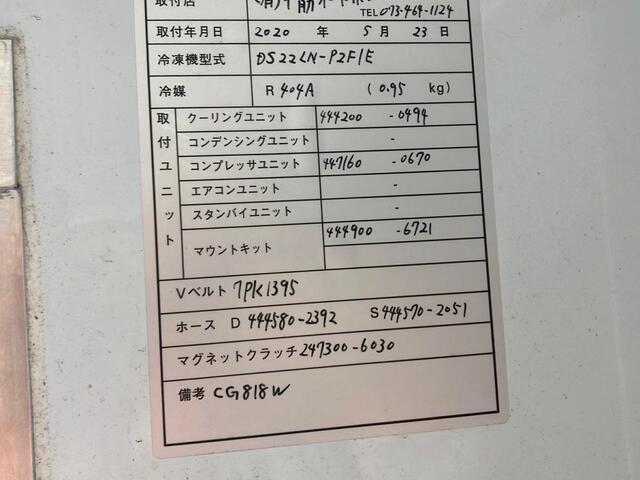 取付店
TEL 073-464-1124
取付年月日 2020 年 5 月 23 日
冷凍機型式 DS22LN-P2F1E
冷媒 R 404A ( 0.95 kg)
取付ユニット
クーリングユニット 444200 -0494
コンデンシングユニット -
コンプレッサユニット 447160 -0670
エアコンユニット -
スタンバイユニット -
マウントキット 444900 -6721
Vベルト 7PK1395
ホース D 444580-2392 S 444570-2051
マグネットクラッチ 247300-6030
備考 CG818W